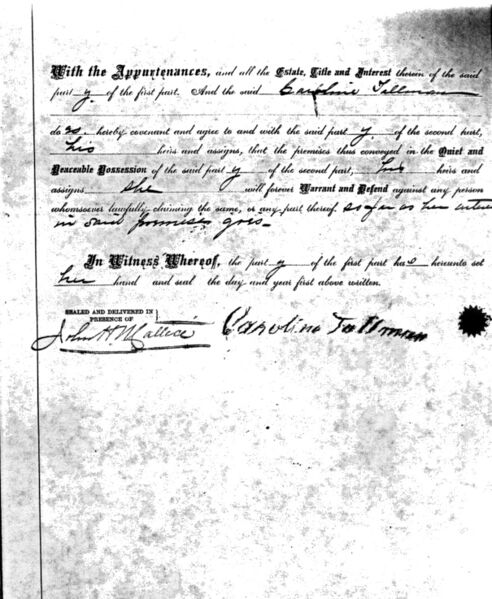 With the Appurtenances, and all the Estate, Title and Interest therein of the said
part y of the first part. And the said Caroline Tallman
do es hereby covenant and agree to and with the said part y of the second part,
his heirs and assigns, that the premises thus conveyed in the Quiet and
Peaceable Possession of the said part y of the second part, his heirs and
assigns she will forever Warrant and Defend against any person
whomsoever lawfully claiming the same, or any part thereof so far as her
in said premises goes-
In Witness Whereof, the part y of the first part has hereunto set
her hand and seal the day and year first above written.
SEALED AND DELIVERED IN
PRESENCE OF
John H
Caroline Tallman